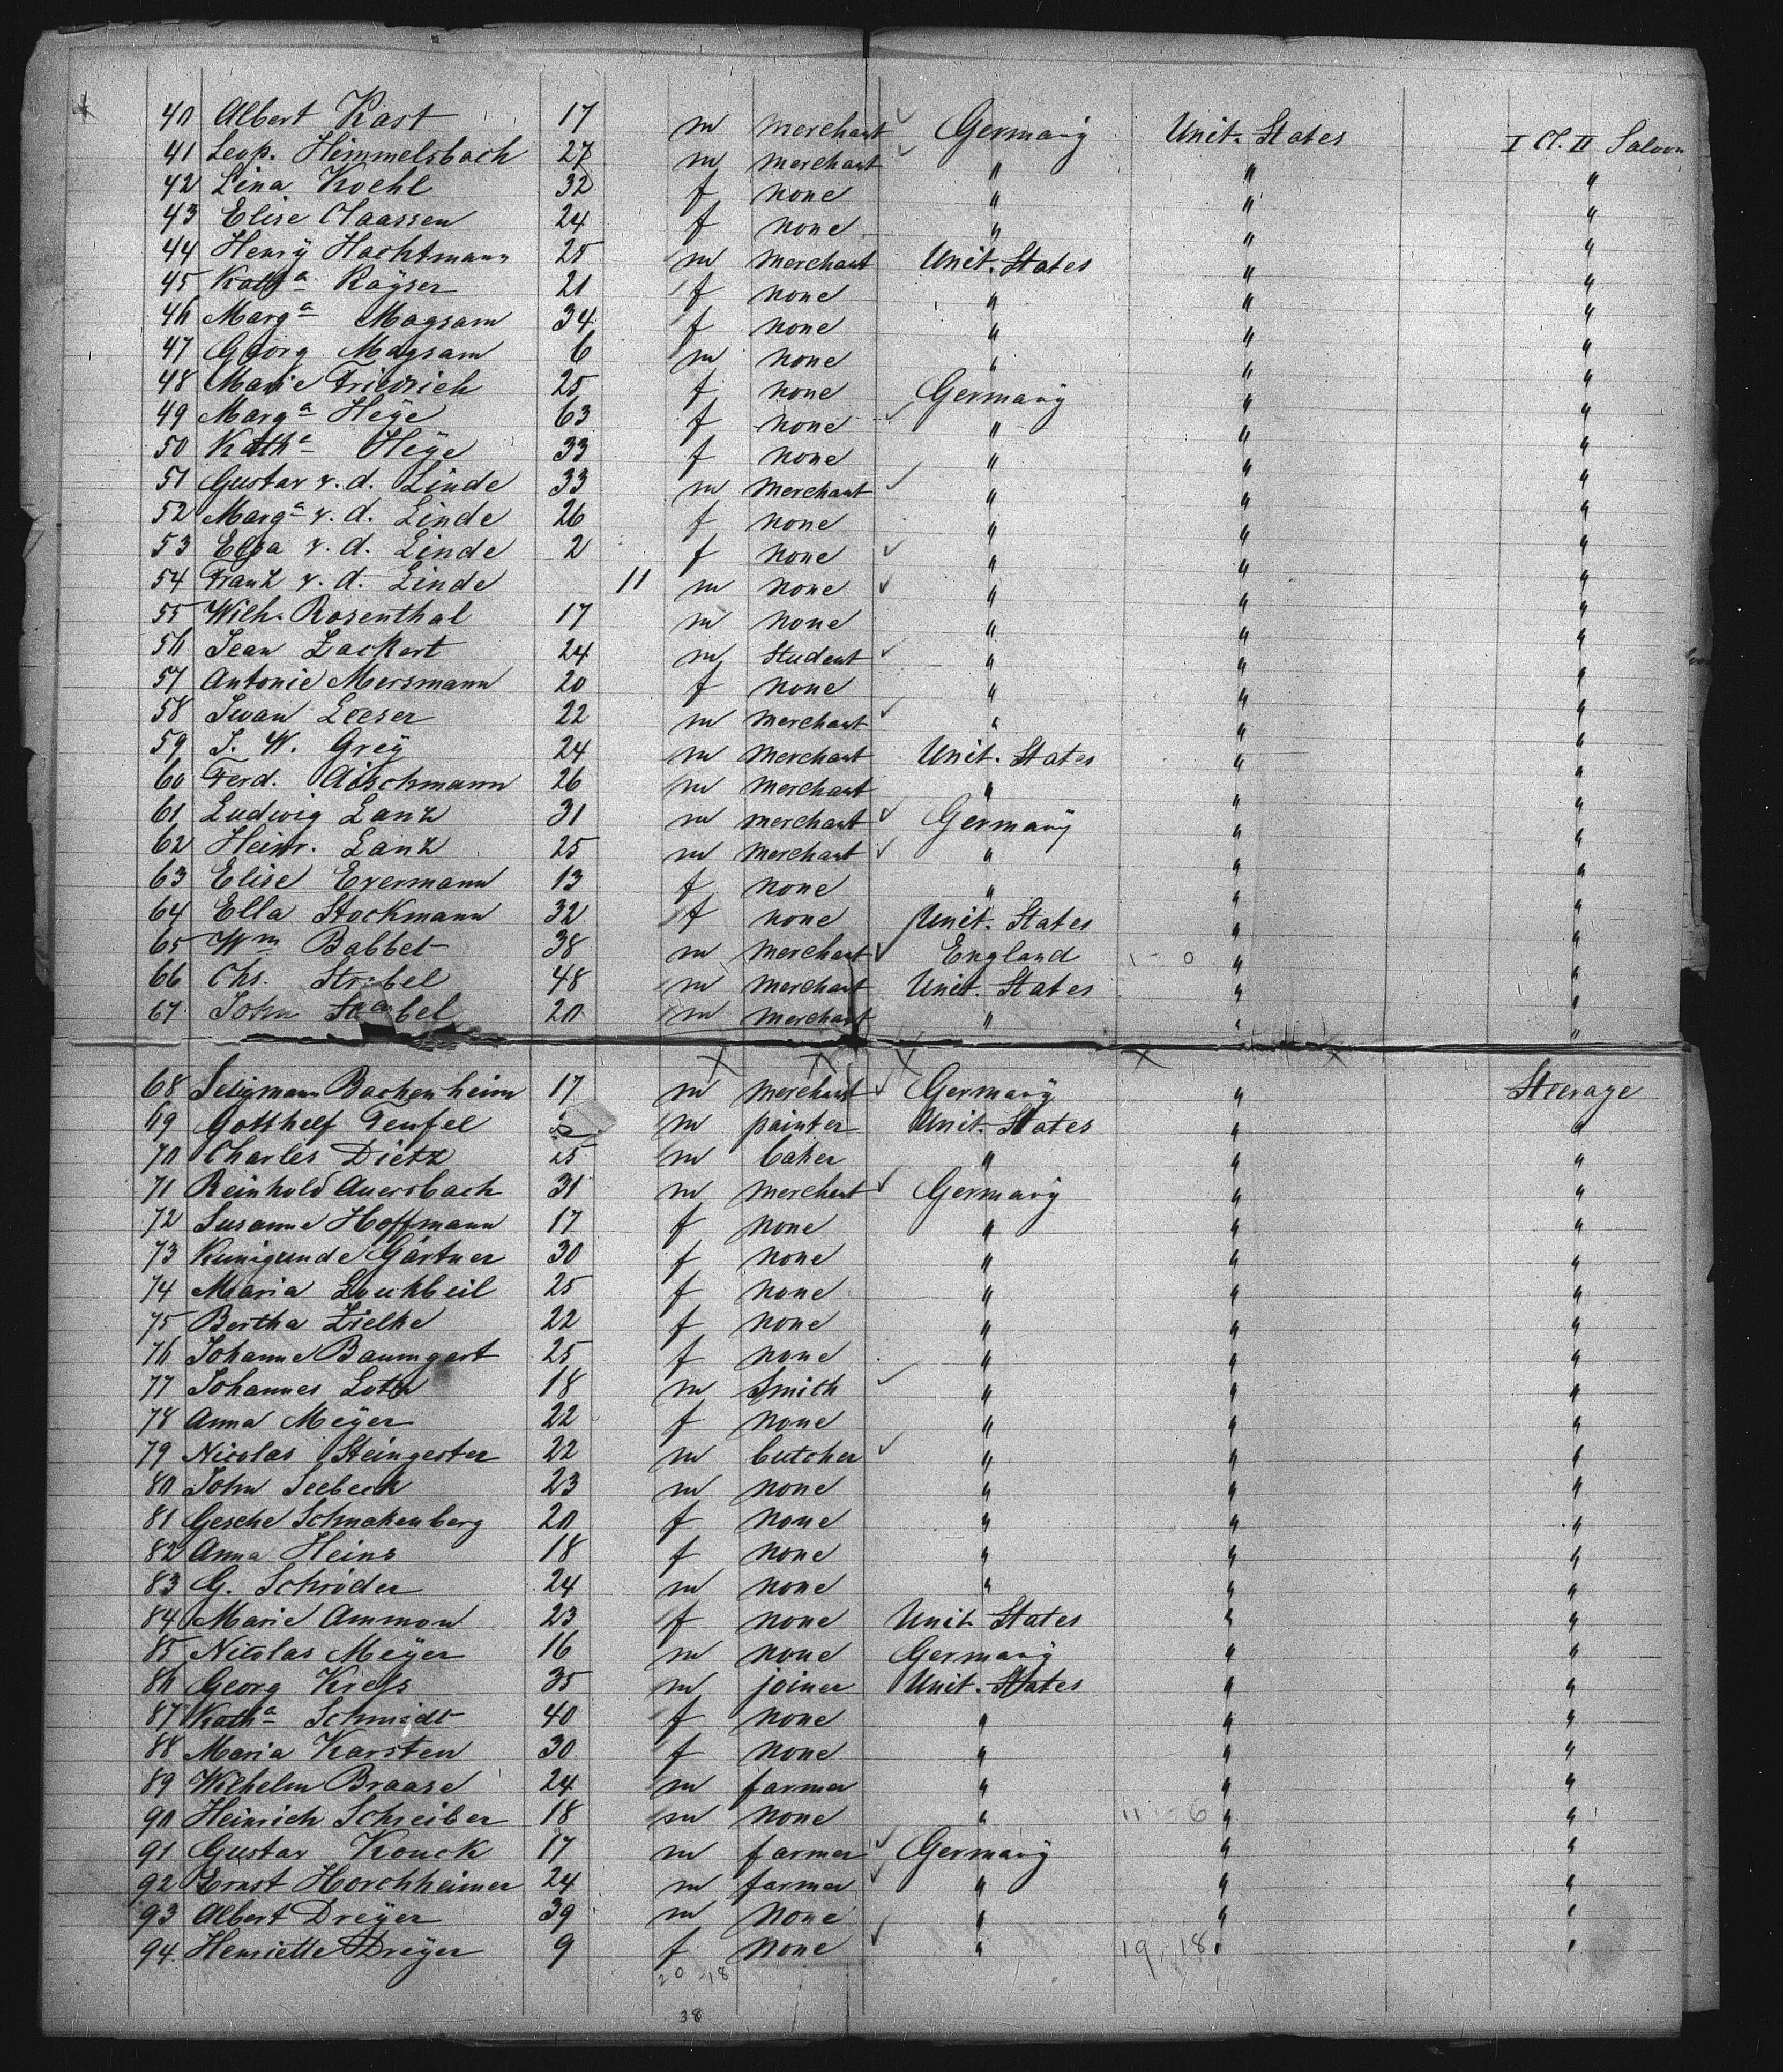 40 Albert Kast 17 m merchant Germany Unit. States I Cl. II Saloon
41 Leop. Himmelsbach 27 m merchant " " "
42 Lina Koehl 32 f none " " "
43 Elise Claassen 24 f none " " "
44 Henry Hachtmann 25 m merchant Unit. States " "
45 Kath<sup>a</sup> Kayser 21 f none " " "
46 Marg<sup>a</sup> Magsam 34 f none " " "
47 Georg Magsam 6 m none " " "
48 Marie Friedrich 25 f none Germany " "
49 Marg<sup>a</sup> Heye 63 f none " " "
50 Kath<sup>a</sup> Heye 33 f none " " "
51 Gustav v. d. Linde 33 m merchant " " "
52 Marg<sup>a</sup> v. d. Linde 26 f none " " "
53 Elsa v. d. Linde 2 f none " " "
54 Franz v. d. Linde 11 m none " " "
55 Wilh. Rosenthal 17 m none " " "
56 Jean Zackert 24 m Student " " "
57 Antonie Mersmann 20 f none " " "
58 Iwan Loeser 22 m merchant " " "
59 J. W. Grey 24 m merchant Unit. States " "
60 Ferd. Aischmann 26 m merchant " " "
61 Ludwig Lanz 31 m merchant Germany " "
62 Heinr. Lanz 25 m merchant " " "
63 Elise Evermann 13 f none " " "
64 Ella Stockmann 32 f none Unit. States " "
65 Wm Babbet 38 m merchant England 1 - 0 " "
66 Chs. Strobel 48 m merchant Unit. States " "
67 John 20 m merchant " " "
68 Seligmann Bachenheim 17 m merchant Germany " Steerage
69 Gotthelf Teufel m painter Unit. States " "
70 Charles Dietz 25 m baker " " "
71 Reinhold Auersbach 31 m merchant Germany " "
72 Susanne Hoffmann 17 f none " " "
73 Kunigunde Gärtner 30 f none " " "
74 Maria Leuchbeil 25 f none " " "
75 Bertha Zielke 22 f none " " "
76 Johanne Baumgart 25 f none " " "
77 Johannes Loth 18 m Smith " " "
78 Anna Meyer 22 f none " " "
79 Nicolas Steingester 22 m butcher " " "
80 John Seebeck 23 m none " " "
81 Gesche Schnakenberg 20 f none " " "
82 Anna Heins 18 f none " " "
83 G. Schröder 24 m none " " "
84 Marie Ammon 23 f none Unit. States " "
85 Nicolas Meyer 16 m none Germany " "
86 Georg Kress 35 m joiner Unit. States " "
87 Kath<sup>a</sup> Schmidt 40 f none " " "
88 Maria Karsten 30 f none " " "
89 Wilhelm Braase 24 m farmer " " "
90 Heinrich Schreiber 18 m none " 11 - 6 " "
91 Gustav Konck 17 m farmer Germany " "
92 Ernst Horchheimer 24 m farmer " " "
93 Albert Dreyer 39 m none " " "
94 Henriette Dreyer 9 f none " 19 - 18 " "
20 - 18
38